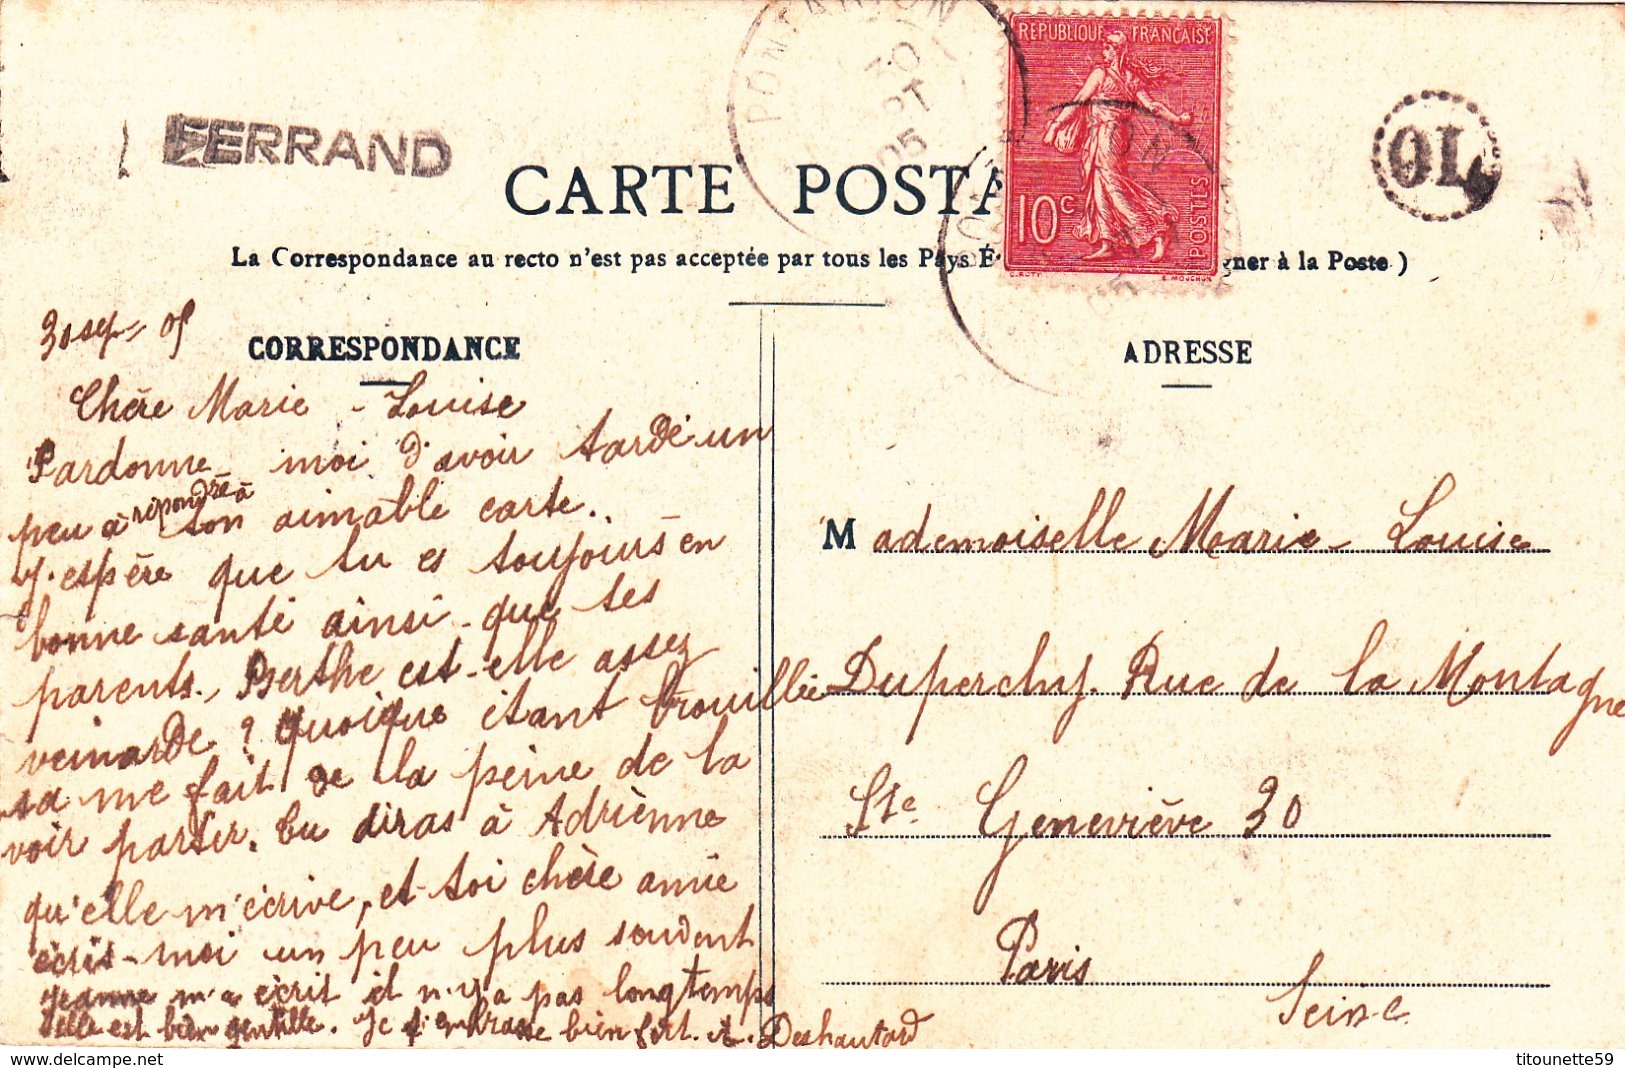 FERRAND
PONTARION
30
PT
05
REPUBLIQUE FRANÇAISE
10c
POSTES
E. MOUCHON
OL
CARTE POSTA
La Correspondance au recto n'est pas acceptée par tous les Pays É
gner à la Poste )
30 sep= 05
CORRESPONDANCE
Chère Marie - Louise
Pardonne-moi d'avoir tardé un
peu à répondre à ton aimable carte.
J'espère que tu es toujours en
bonne santé ainsi que tes
parents. Berthe est-elle assez
veinarde ? Quoique étant brouillée
sa me fait de la peine de la
voir partir. Tu diras à Adriènne
qu'elle m'écrive, et toi chère amie
écris-moi un peu plus souvent
Jeanne m'a écrit il n'y a pas longtemps
elle est bien gentille. Je t'embrasse bien fort. A. Deshautard
ADRESSE
Mademoiselle Marie - Louise
Duperchy. Rue de la Montagne
Ste Geneviève 30
Paris
Seine
titounette59@delcampe.net